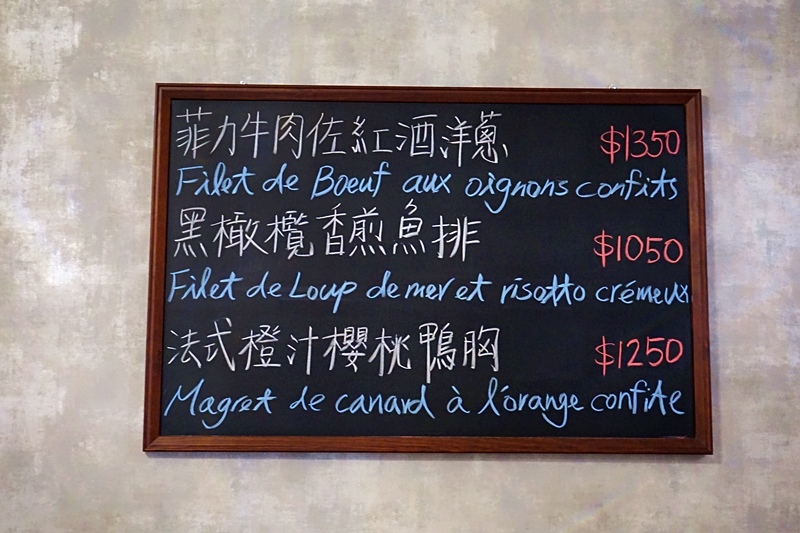 菲力牛肉佐紅酒洋蔥 $1350
Filet de Boeuf aux oignons confits
黑橄欖香煎魚排 $1050
Filet de Loup de mer et risotto crémeux
法式橙汁櫻桃鴨胸 $1250
Magret de canard à l'orange confite